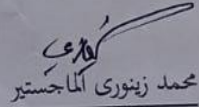 محمد زينورى الماجستير